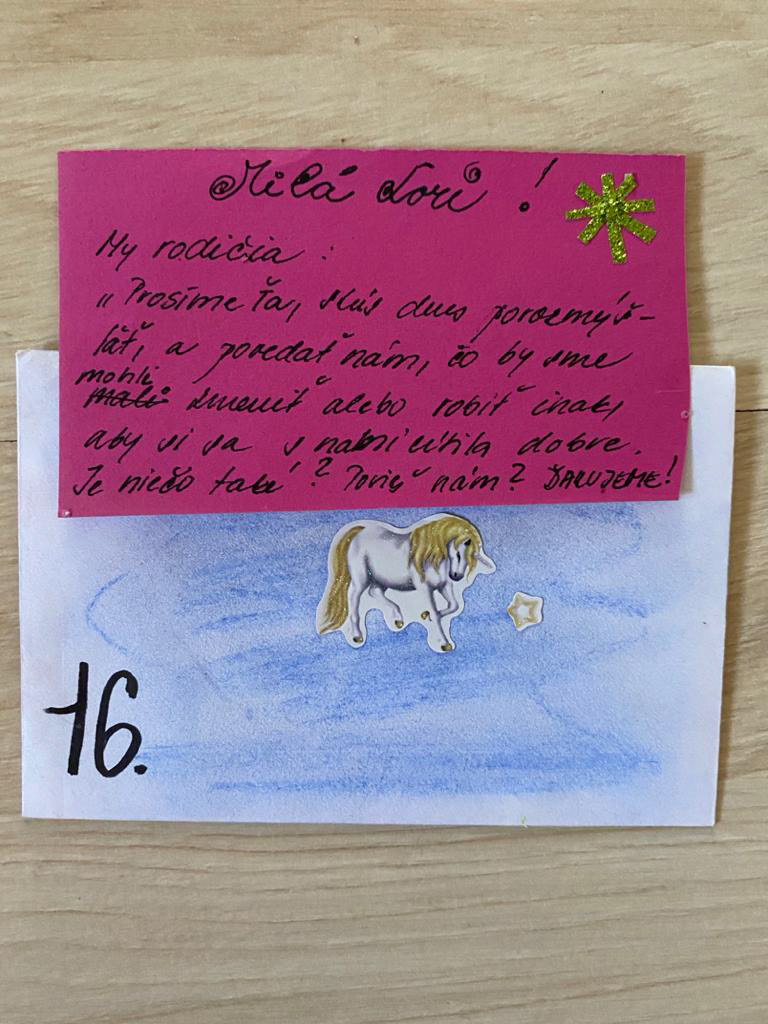 Milá Lori !
My rodičia :
„Prosíme Ťa, skús dnes porozmýš-
ľať, a povedať nám, čo by sme
mohli
zmeniť alebo robiť inak,
aby si sa s nami cítila dobre.
Je niečo také? Povieš nám? ĎAKUJEME!
16.